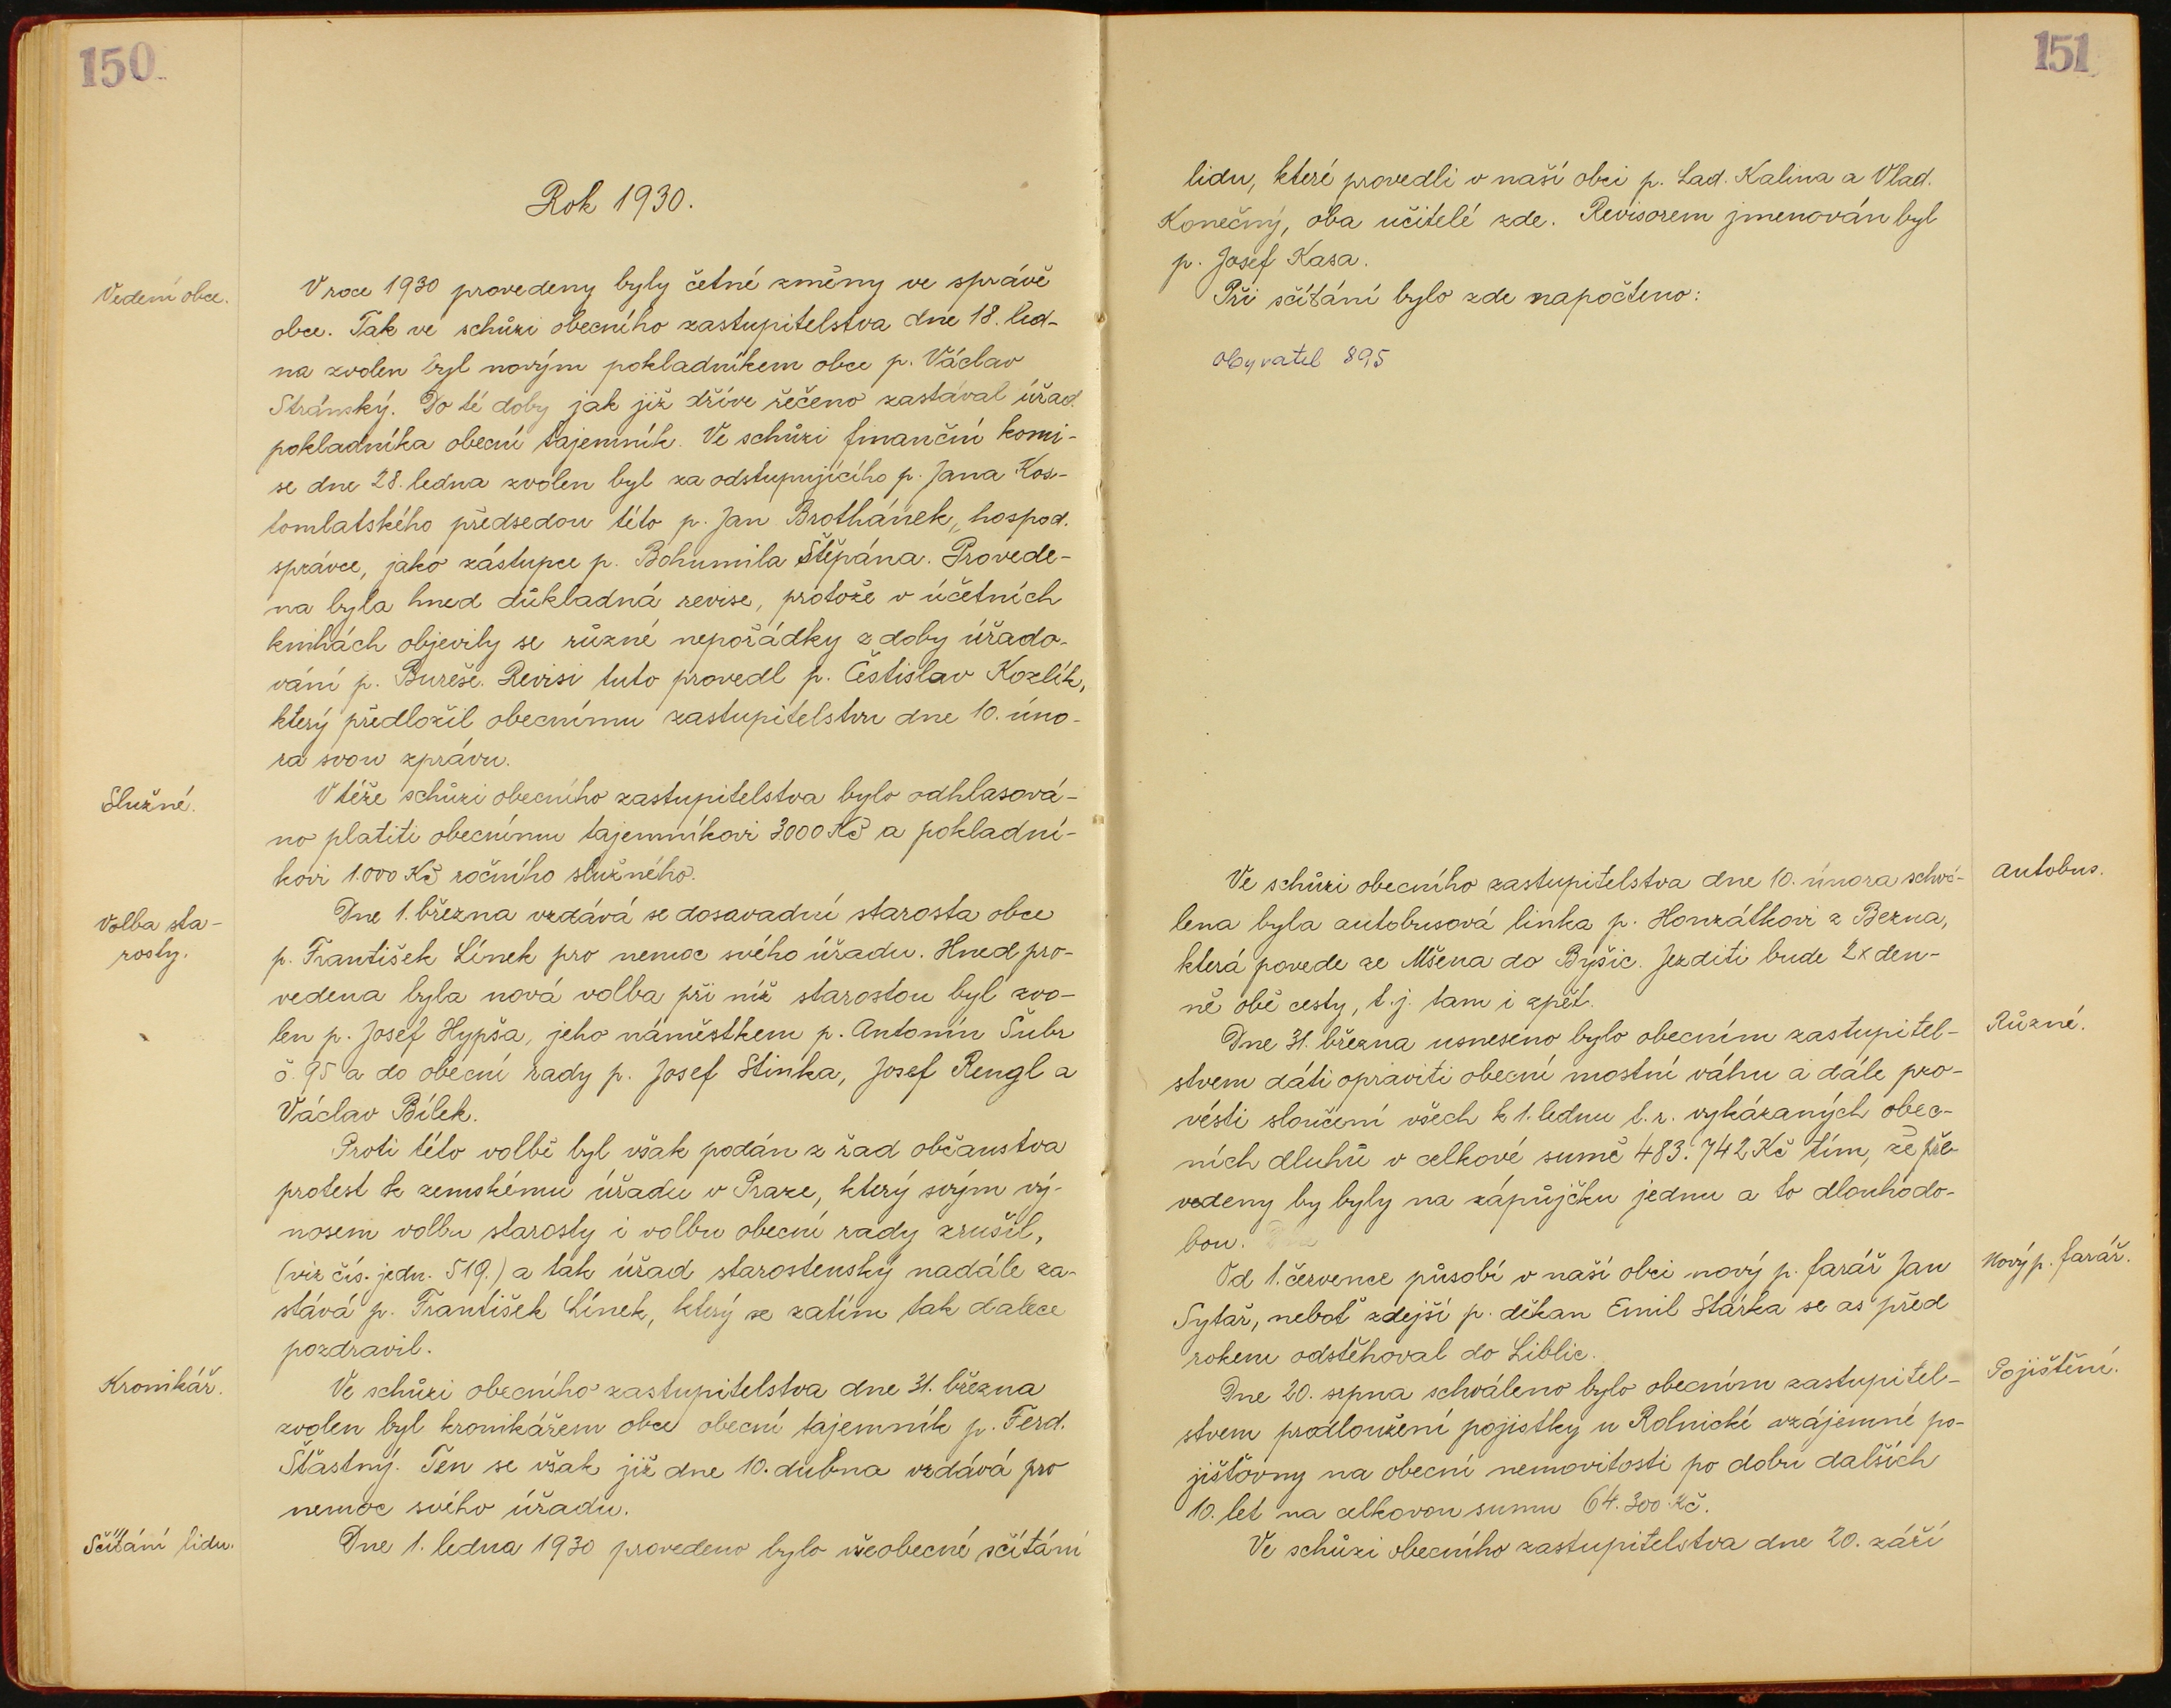 150
Rok 1930.
Vedení obce.
V roce 1930 provedeny byly četné změny ve správě
obce. Tak ve schůzi obecního zastupitelstva dne 18. led-
na zvolen byl novým pokladníkem obce p. Václav
Stránský. Do té doby jak již dříve řečeno zastával úřad
pokladníka obecní tajemník. Ve schůzi finanční komi-
se dne 28. ledna zvolen byl za odstupujícího p. Jana Kos-
tomlatského předsedou této p. Jan Brothánek, hospod.
správce, jako zástupce p. Bohumila Štěpána. Provede-
na byla hned důkladná revise, protože v účetních
knihách objevily se různé nepořádky z doby úřado-
vání p. Bureše. Revisi tuto provedl p. Čestislav Kozlík,
který předložil obecnímu zastupitelstvu dne 10. úno-
ra svou zprávu.
Služné.
V téže schůzi obecního zastupitelstva bylo odhlasová-
no platiti obecnímu tajemníkovi 3000 Kč a pokladní-
kovi 1.000 Kč ročního služného.
Volba sta-
rosty.
Dne 1. března vzdává se dosavadní starosta obce
p. František Línek pro nemoc svého úřadu. Hned pro-
vedena byla nová volba při níž starostou byl zvo-
len p. Josef Hypša, jeho náměstkem p. Antonín Šubr
č. 95 a do obecní rady p. Josef Stinka, Josef Rengl a
Václav Bílek.
Proti této volbě byl však podán z řad občanstva
protest k zemskému úřadu v Praze, který svým vý-
nosem volbu starosty i volbu obecní rady zrušil,
(viz čís. jedn. 519.) a tak úřad starostenský nadále za-
stává p. František Línek, který se zatím tak dalece
pozdravil.
Kronikář.
Ve schůzi obecního zastupitelstva dne 31. března
zvolen byl kronikářem obce obecní tajemník p. Ferd.
Šťastný. Ten se však již dne 10. dubna vzdává pro
nemoc svého úřadu.
Sčítání lidu.
Dne 1. ledna 1930 provedeno bylo všeobecné sčítání
151
lidu, které provedli v naší obci p. Lad. Kalina a Vlad.
Konečný, oba učitelé zde. Revisorem jmenován byl
p. Josef Kasa.
Při sčítání bylo zde napočteno:
Obyvatel 895
Autobus.
Ve schůzi obecního zastupitelstva dne 10. února schvá-
lena byla autobusová linka p. Honzátkovi z Bezna,
která povede ze Mšena do Byšic. Jezditi bude 2x den-
ně obě cesty, t.j. tam i zpět.
Různé.
Dne 31. března usneseno bylo obecním zastupitel-
stvem dáti opraviti obecní mostní váhu a dále pro-
vésti sloučení všech k 1. lednu t.r. vykázaných obec-
ních dluhů v celkové sumě 483.742 Kč tím, že pře-
vedeny by byly na zápůjčku jednu a to dlouhodo-
bou.
Nový p. farář.
Od 1. července působí v naší obci nový p. farář Jan
Sytař, neboť zdejší p. děkan Emil Stárka se as před
rokem odstěhoval do Liblic.
Pojištění.
Dne 20. srpna schváleno bylo obecním zastupitel-
stvem prodloužení pojistky u Rolnické vzájemné po-
jišťovny na obecní nemovitosti po dobu dalších
10. let na celkovou sumu 64.300 Kč.
Ve schůzi obecního zastupitelstva dne 20. září